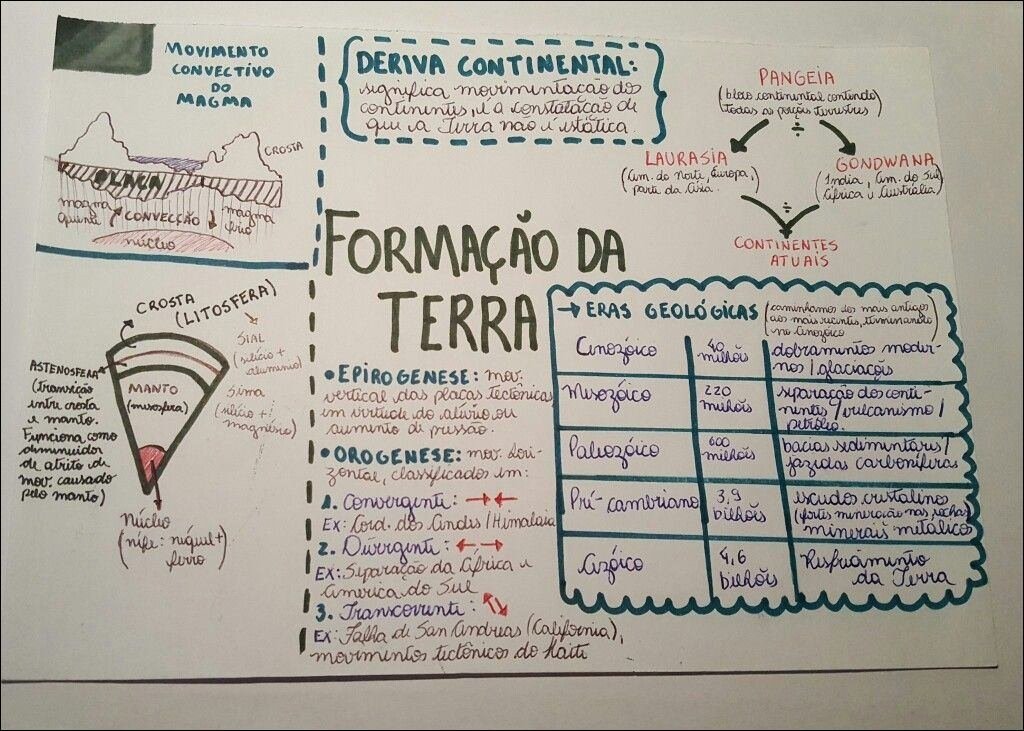 MOVIMENTO
CONVECTIVO
DO
MAGMA
CROSTA
PLACA
magma
quente
CONVECÇÃO
magma
frio
núcleo
DERIVA CONTINENTAL:
significa movimentação dos
continentes, e a constatação de
que a Terra não é estática.
PANGEIA
(bloco continental contendo
todas as porções terrestres)
÷
LAURASIA
(Am. do Norte, Europa,
parte da Ásia)
GONDWANA
(Índia, Am. do Sul,
África e Austrália)
÷
CONTINENTES
ATUAIS
FORMAÇÃO DA
TERRA
CROSTA
(LITOSFERA)
SIAL
(silício +
alumínio)
Sima
(silício +
magnésio)
ASTENOSFERA
(transição
entre crosta
e manto.
Funciona como
diminuidor
de atrito de
mov. causado
pelo manto)
MANTO
(mesosfera)
Núcleo
(nife: níquel +
ferro)
• EPIROGENESE: mov.
vertical das placas tectônicas
em virtude do alívio ou
aumento de pressão.
• OROGENESE: mov. hori-
zontal, classificados em:
1. Convergente: → ←
EX: Cord. dos Andes / Himalaia
2. Divergente: ← →
EX: Separação da África e
América do Sul
3. Transcorrente:
EX: Falha de San Andreas (California),
movimentos tectônicos do Haiti
→ ERAS GEOLÓGICAS (caminhamos dos mais antigos
aos mais recentes, terminando
no Cenozóico
Cenozóico
milhões
dobramentos moder-
nos / glaciações
Mesozóico
220
milhões
separação dos conti-
nentes / vulcanismo /
petróleo.
Paleozóico
600
milhões
bacias sedimentares /
jazidas carboníferas
Pré-cambriano
3,9
bilhões
escudos cristalinos
(fortes mineração nas rochas)
minerais metálicos
Azóico
4,6
bilhões
Resfriamento
da Terra